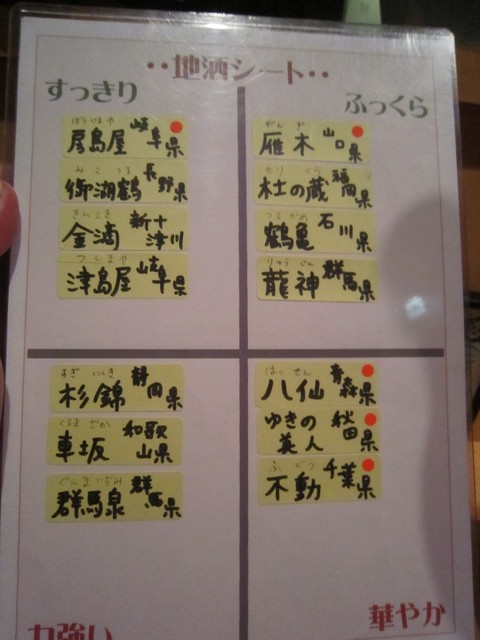 ・・地酒シート・・
すっきり
ふっくら
岐阜県
御湖鶴 長野県
みこつる
金滴 新十津川
きんてき
津島屋 岐阜県
つしまや
がんぎ
雁木 山口県
もりくら
杜の蔵 福岡県
つるかめ
鶴亀 石川県
りゅうじん
龍神 群馬県
すぎにしき
杉錦 静岡県
くるまざか
車坂 和歌山県
ぐんまいずみ
群馬泉 群馬県
はっせん
八仙 青森県
ゆきの美人 秋田県
ふどう
不動 千葉県
力強い
華やか